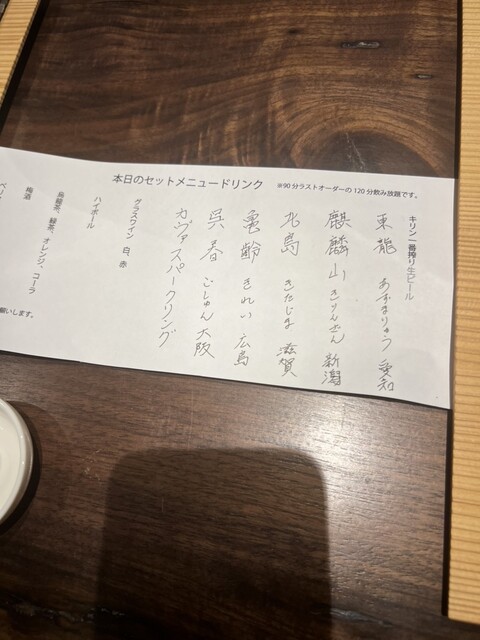 本日のセットメニュードリンク ※90分ラストオーダーの120分飲み放題です。
キリン一番搾り生ビール
東龍 あずまりゅう 愛知
麒麟山 きりんざん 新潟
北島 きたじま 滋賀
亀齢 きれい 広島
呉春 ごしゅん 大阪
カヴァスパークリング
グラスワイン 白、赤
ハイボール
烏龍茶、緑茶、オレンジ、コーラ
梅酒
願いします。